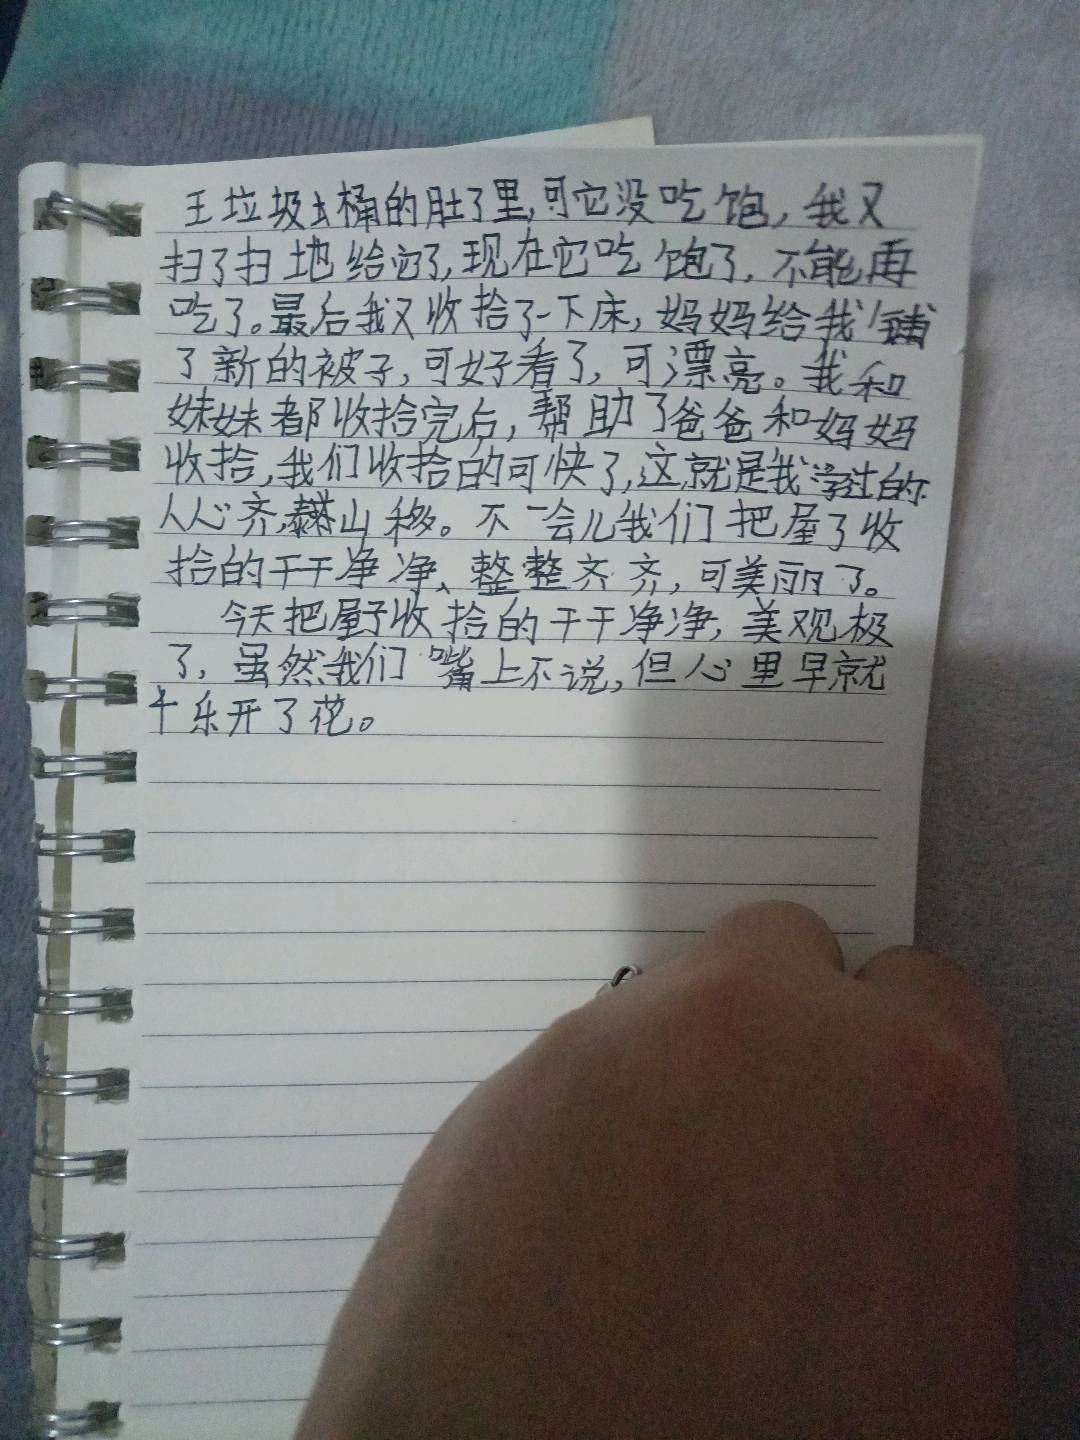 王垃圾土桶的肚了里,可它没吃饱,我又
扫了扫地给它了,现在它吃饱了,不能再
吃了。最后我又收拾了一下床,妈妈给我铺
了新的被子,可好看了,可漂亮。我和
妹妹都收拾完后,帮助了爸爸和妈妈
收拾,我们收拾的可快了,这就是我学过的
人心齐,泰山移。不一会儿我们把屋了收
拾的干干净净、整整齐齐,可美丽了。
今天把屋子收拾的干干净净,美观极
了,虽然我们嘴上不说,但心里早就
乐开了花。